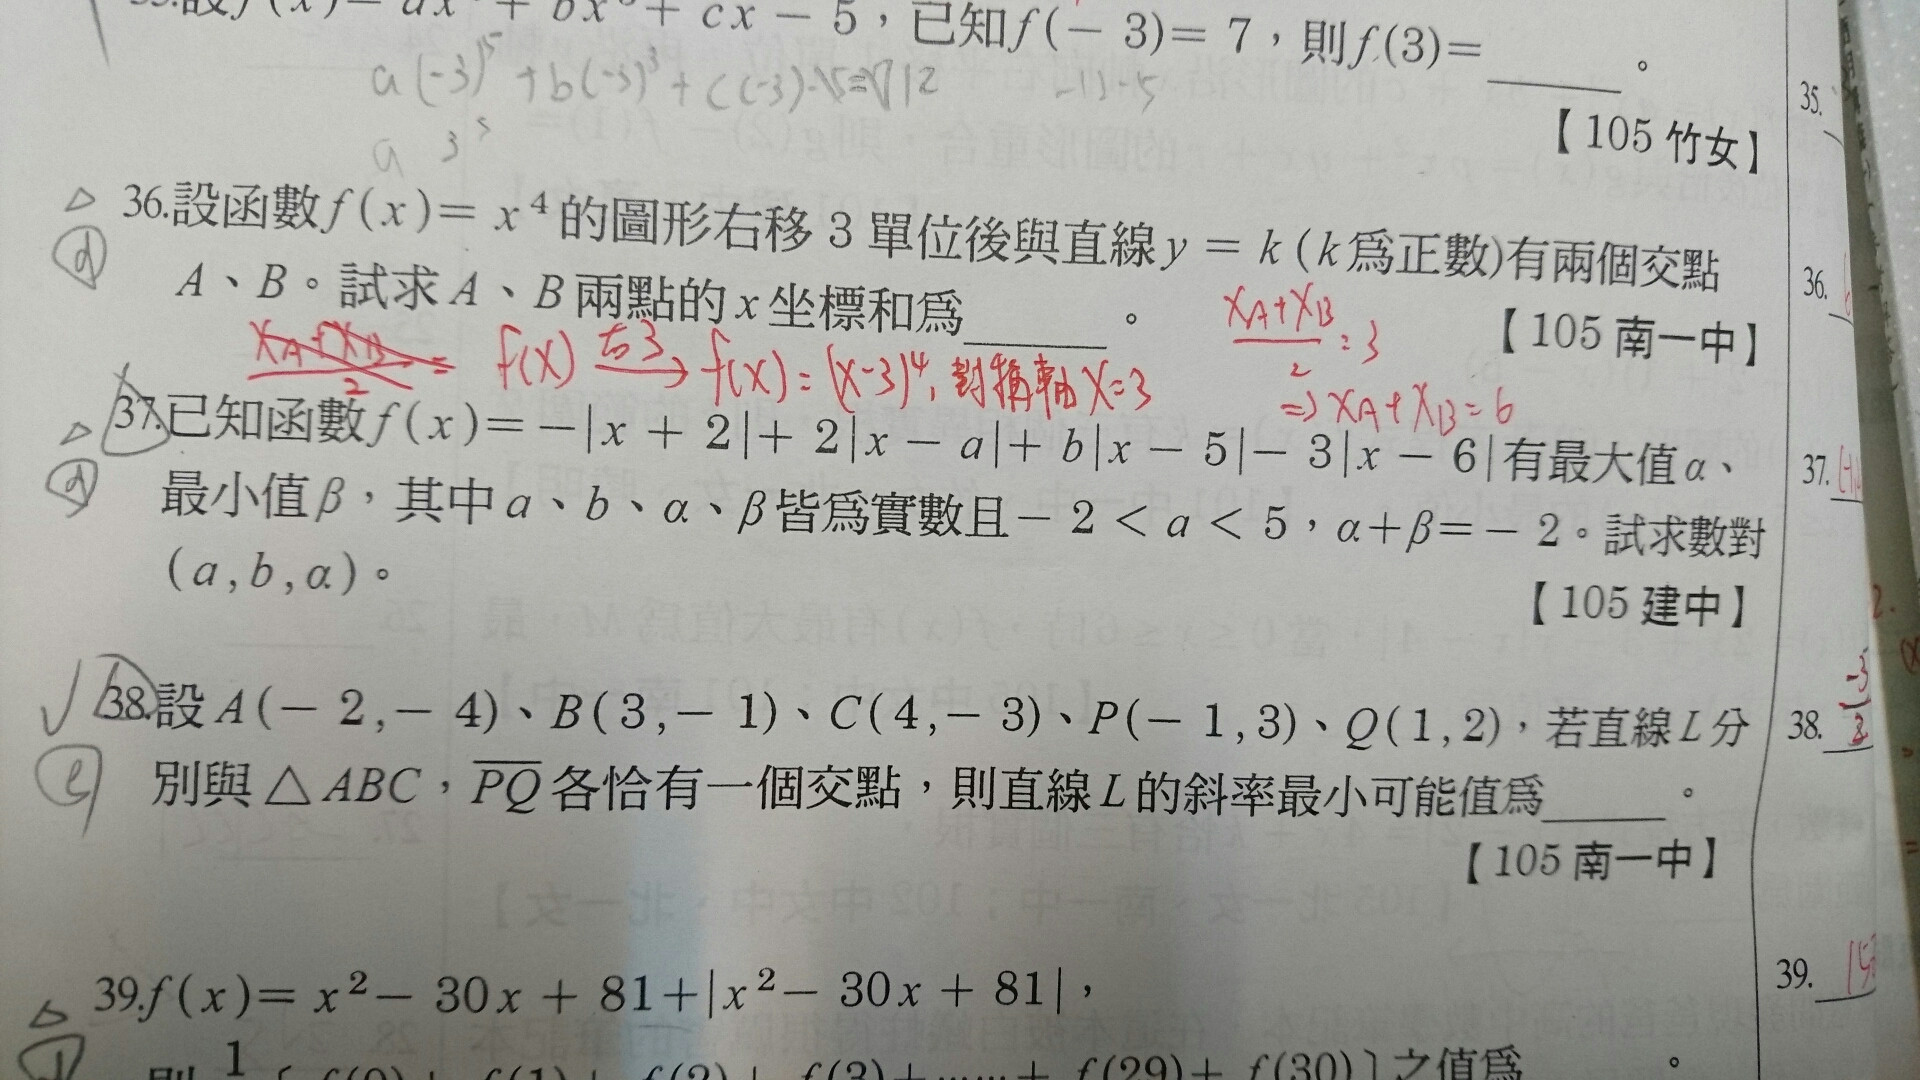 35.設f(x)= ax⁵+ bx³+ cx − 5，已知f(− 3)= 7，則f(3)=______。
a(-3)⁵+b(-3)³+c(-3)
-12-5
35.
a 3⁵
【105 竹女】
36.設函數f(x)= x⁴的圖形右移 3 單位後與直線y = k (k為正數)有兩個交點
36. 6
A、B。試求A、B兩點的x坐標和為______。
【105 南一中】
(xA+xB)/2 =
f(x) 右3→ f(x)=(x-3)⁴, 對稱軸x=3
(xA+xB)/2 = 3
⇒ xA+xB=6
37.已知函數f(x)=−|x + 2|+ 2|x − a|+ b|x − 5|− 3|x − 6|有最大值α、
37.
最小值β，其中a、b、α、β皆為實數且− 2 < a < 5，α+β=− 2。試求數對
(a,b,α)。
【105 建中】
38.設A(− 2,− 4)、B(3,− 1)、C(4,− 3)、P(− 1,3)、Q(1,2)，若直線L分
38.
別與△ABC，PQ各恰有一個交點，則直線L的斜率最小可能值為______。
【105 南一中】
39.f(x)= x²− 30x + 81+|x²− 30x + 81|，
39.
f(29)+ f(30)]之值為______。